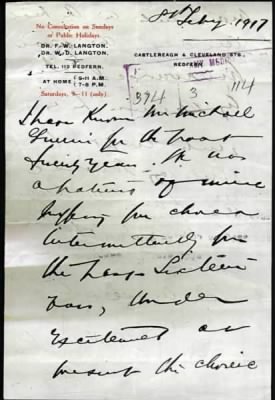 No Consultation on Sundays
or Public Holidays.
DR. F. W. LANGTON.
DR. W. D. LANGTON.
TEL. 112 REDFERN.
AT HOME 9-11 A.M.
7-8 P.M.
Saturdays, 9-11 (only).
8th Feby 1917
CASTLEREAGH & CLEVELAND STS.
REDFERN
3994 3 114
I have known Mr Michael
for the past
twenty years. He was
a patient of mine
for chorea
intermittently for
the
years, Under
excitement at
present the chorea